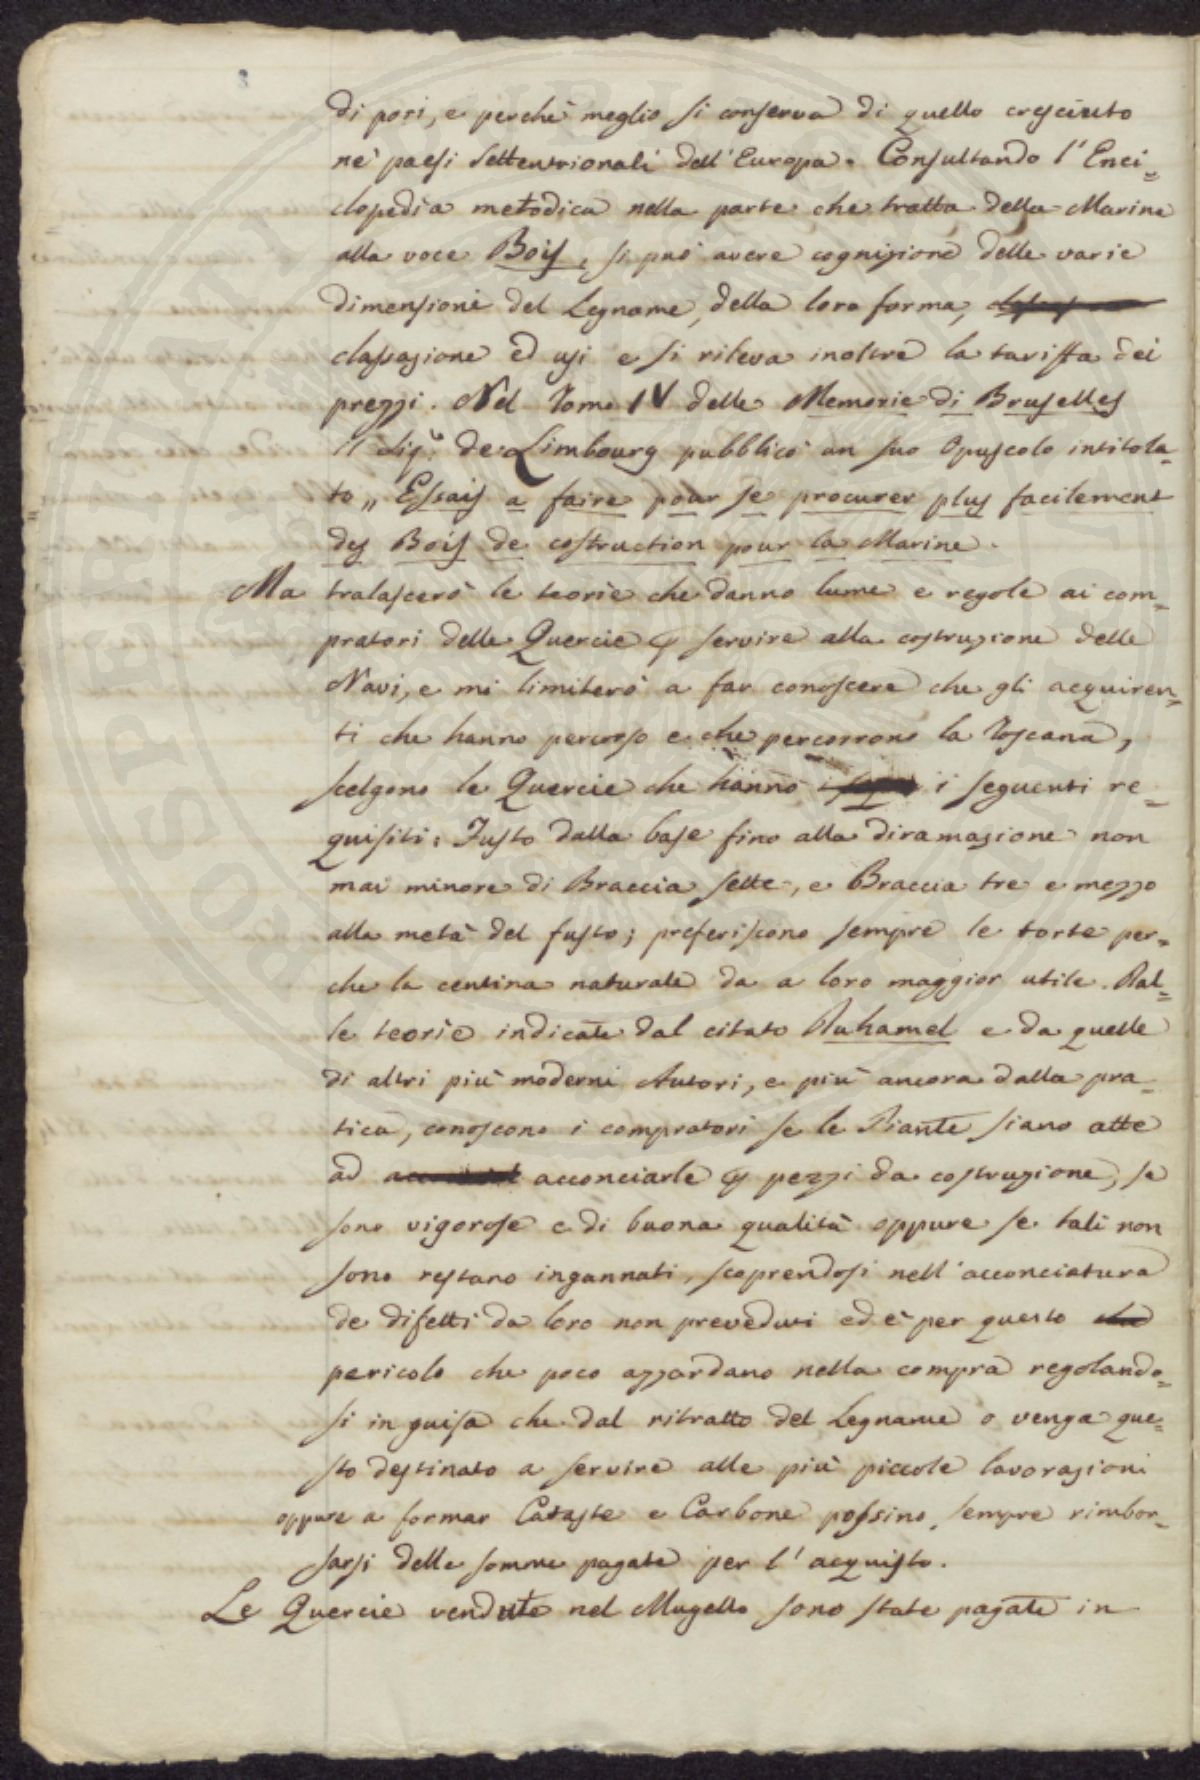 di pori, e perchè meglio si conserva di quello cresciuto
ne' paesi settentrionali dell'Europa. Consultando l'Enci=
clopedia metodica nella parte che tratta della Marina
alla voce Bois, si può avere cognizione delle varie
dimensioni del Legname, della loro forma,
classazione ed usi e si rileva inoltre la tariffa dei
prezzi. Nel Tomo IV delle Memorie di Bruselles
il Sig.r de Limbourg pubblicò un suo Opuscolo intitola=
to „ Essais a faire pour se procurer plus facilement
des Bois de costruction pour la Marine.
Ma tralascerò le teorie che danno lume e regole ai com=
pratori delle Quercie p servire alla costruzione delle
Navi, e mi limiterò a far conoscere che gli acquiren=
ti che hanno percorso e che percorrono la Toscana,
scelgono le Quercie che hanno i seguenti re=
quisiti: Fusto dalla base fino alla diramazione non
mai minore di Braccia sette, e Braccia tre e mezzo
alla metà del fusto; preferiscono sempre le torte per=
che la centina naturale da a loro maggior utile. Dal=
le teorie indicate dal citato Duhamel e da quelle
di altri più moderni Autori, e più ancora dalla pra=
tica, conoscono i compratori se le Piante siano atte
ad acconciarle p pezzi da costruzione, se
sono vigorose e di buona qualità oppure se tali non
sono restano ingannati, scoprendosi nell'acconciatura
de difetti da loro non preveduti ed è per questo
pericolo che poco azzardano nella compra regolando=
si in guisa che dal ritratto del Legname o venga que=
sto destinato a servire alle più piccole lavorazioni
oppure a formar Cataste e Carbone possino sempre rimbor=
sarsi delle somme pagate per l'acquisto.
Le Quercie vendute nel Mugello sono state pagate in